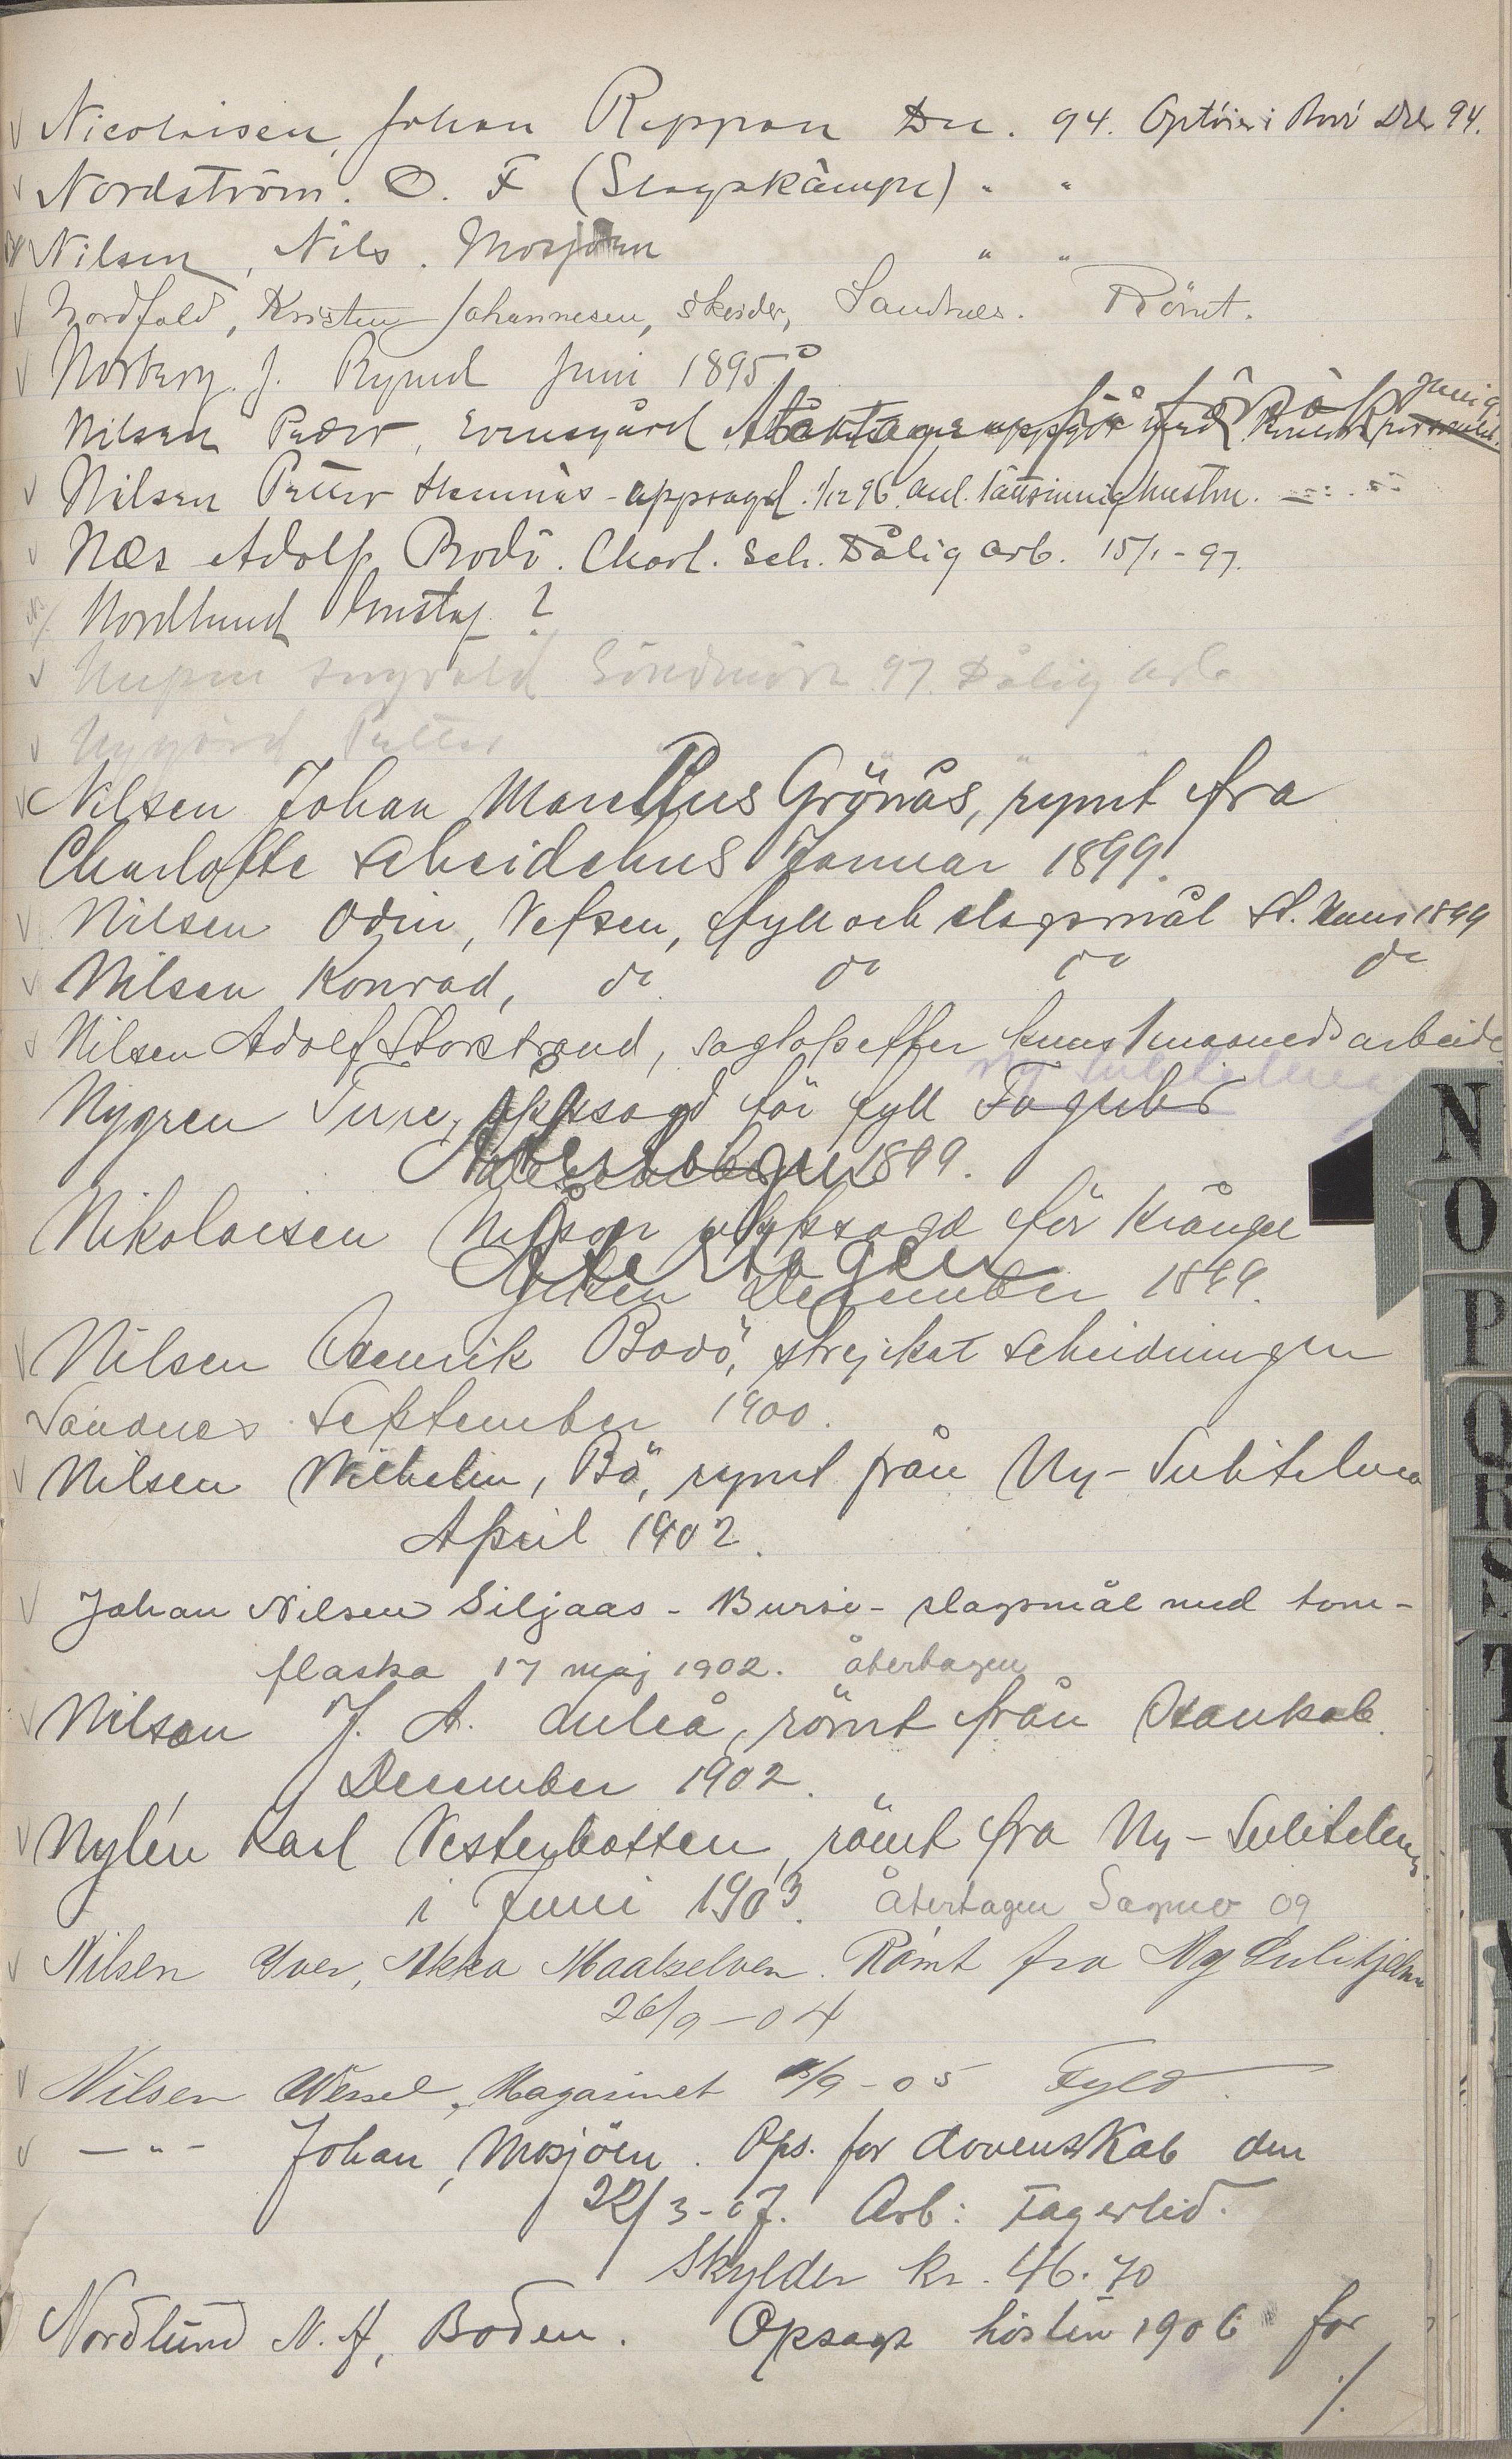 Nicolaisen, Johan Reppan Dec. 94. Optöier i Röri Dec 94.
Nordström. O. F (Slagskämpe) " "
Nilsen, Nils. Mosjøen " "
Nordfold, Kristen Johannesen, skeider, Sandnes. Römt.
Norberg. J. Rymd Juni 1895
Nilsen Peder, Evensgård på försök Juni 9
Nilsen Petter Hemnäs - uppsagd. 1/12 96. anl. lättsinnig hustru.
Næs Adolf Bodö. Charl. Sch. Dålig arb. 15/1 - 97.
Nordlund Gustaf ?
Ingvald Söndmör 97. Dålig arb
Nygård Petter
Nilsen Johan Marelius Grönås, rymt fra
Charlotte scheidehus Januar 1899.
Nilsen Odin, Vefsen, fyll och slagsmål St. Hans 1899
Nilsen Konrad, do do do do
Nilsen Adolf Storstrand, sagtop efter kuns 1 maaneds arbeide
Ny Sulitelma
Nygren Ture, uppsagd för fyll Fagerli
Återtagen 1899.
Nikolaisen uppsagd för krångel
Återtagen
Gitsen December 1899.
Nilsen Henrik Bodö, strejkat scheidningen
Sandnes September 1900.
Nilsen Wilhelm, Bö, rymt från Ny-Sulitelma
April 1902.
Johan Nilsen Siljaas - Bursi - slagsmål med tom-
flaska 17 maj 1902. återtagen
Nilson J. A. Luleå, römt från Hankab.
December 1902.
Nylén Karl Vesterbotten, römt fra Ny-Sulitelma.
i Juni 1903. återtagen Sagmo 09
Nilsen Iver, Akka Maalselven. Römt fra Ny Sulitjelma
26/9 - 04
Nilsen Wessel, Magasinet /9 - 05 Fyld.
— " — Johan, Mosjöen. Ops. for dovenskab den
22/3 - 07. Arb: Fagerlid.
Skylder kr. 46.70
Nordlund N. A, Boden. Opsagt hösten 1906 for
./.
N
O
P
Q
R
S
T
U
V